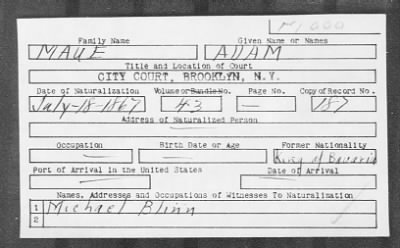 M 000
Family Name Given Name or Names
MAUE ADAM
Title and Location of Court
CITY COURT, BROOKLYN, N.Y.
Date of Naturalization Volume or Bundle No. Page No. Copy of Record No.
July-18-1867 43 — 187
Address of Naturalized Person
Occupation Birth Date or Age Former Nationality
— — King of Bavaria
Port of Arrival in the United States Date of Arrival
— —
Names, Addresses and Occupations of Witnesses To Naturalization
1 Michael Blinn
2